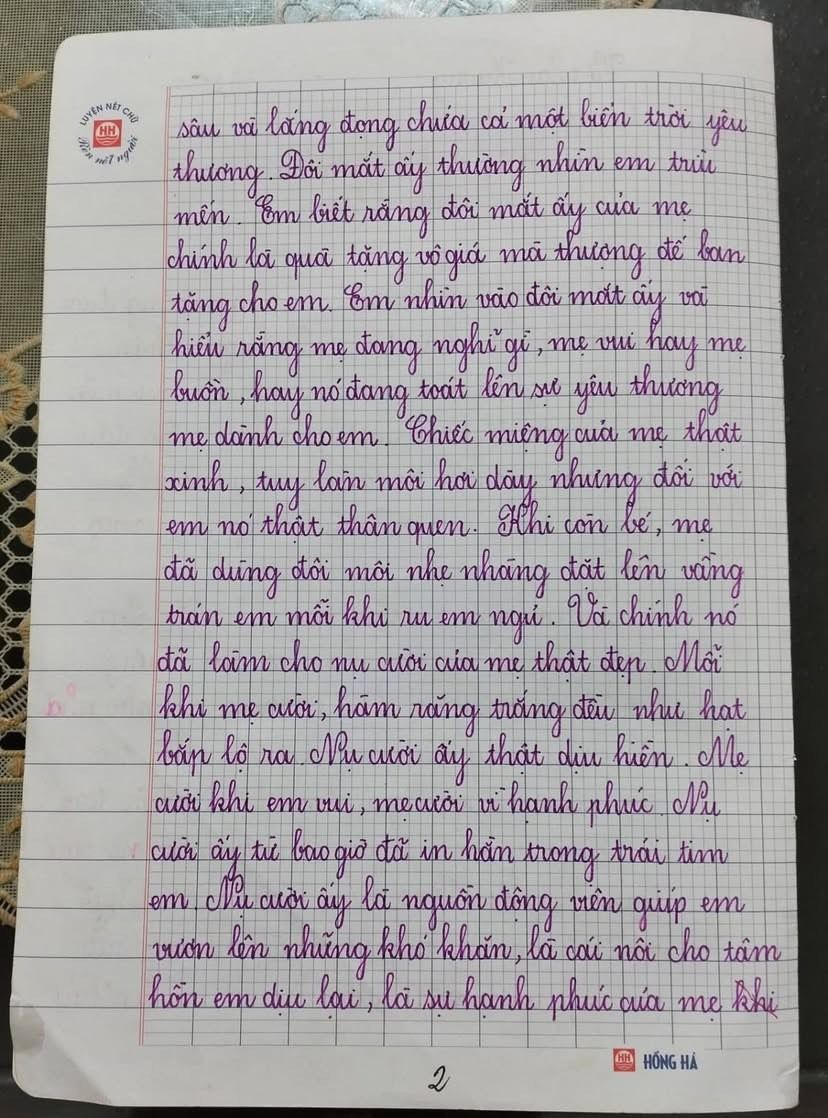 LUYỆN NÉT CHỮ
HH
Rèn nết người
sâu và lắng đọng chứa cả một biển trời yêu
thương. Đôi mắt ấy thường nhìn em trìu
mến. Em biết rằng đôi mắt ấy của mẹ
chính là quà tặng vô giá mà thượng đế ban
tặng cho em. Em nhìn vào đôi mắt ấy và
hiểu rằng mẹ đang nghĩ gì, mẹ vui hay mẹ
buồn, hay nó đang toát lên sự yêu thương
mẹ dành cho em. Chiếc miệng của mẹ thật
xinh, tuy làn môi hơi dày nhưng đối với
em nó thật thân quen. Khi còn bé, mẹ
đã dùng đôi môi nhẹ nhàng đặt lên vầng
trán em mỗi khi ru em ngủ. Và chính nó
đã làm cho nụ cười của mẹ thật đẹp. Mỗi
khi mẹ cười, hàm răng trắng đều như hạt
bắp lộ ra. Nụ cười ấy thật dịu hiền. Mẹ
cười khi em vui, mẹ cười vì hạnh phúc. Nụ
cười ấy từ bao giờ đã in hằn trong trái tim
em. Nụ cười ấy là nguồn động viên giúp em
vươn lên những khó khăn, là cái nôi cho tâm
hồn em dịu lại, là sự hạnh phúc của mẹ khi
2
HH HỒNG HÀ